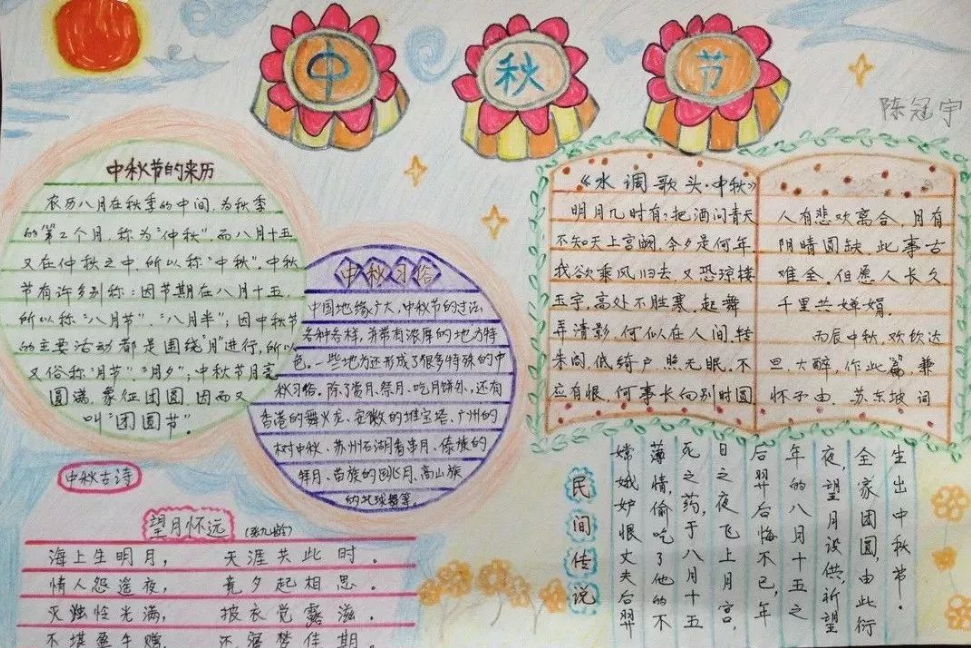 中秋节
陈冠宇
中秋节的来历
农历八月在秋季的中间,为秋季
的第2个月,称为"仲秋",而八月十五
又在仲秋之中,所以称"中秋"。中秋
节有许多别称:因节期在八月十五,
所以称"八月节"、"八月半";因中秋节
的主要活动都是围绕"月"进行,所以
又俗称"月节"、"月夕";中秋节月亮
圆满,象征团圆,因而又
叫"团圆节"。
中秋习俗
中国地缘广大,中秋节的过法
各种各样,并带有浓厚的地方特
色。一些地方还形成了很多特殊的中
秋习俗。除了赏月、祭月、吃月饼外,还有
香港的舞火龙、安徽的堆宝塔、广州的
树中秋、苏州石湖看串月、傣族的
拜月、苗族的跳月、高山族
的托球舞等
《水调歌头·中秋》
明月几时有?把酒问青天
不知天上宫阙,今夕是何年
我欲乘风归去,又恐琼楼
玉宇,高处不胜寒,起舞
弄清影,何似在人间,转
朱阁,低绮户,照无眠,不
应有恨,何事长向别时圆
人有悲欢离合,月有
阴晴圆缺,此事古
难全,但愿人长久
千里共婵娟。
丙辰中秋,欢饮达
旦,大醉,作此篇,兼
怀子由,苏东坡词
中秋古诗
望月怀远 (张九龄)
海上生明月, 天涯共此时。
情人怨遥夜, 竟夕起相思。
灭烛怜光满, 披衣觉露滋。
不堪盈手赠, 还寝梦佳期
民间传说
嫦娥妒恨丈夫后羿
薄情,偷吃了他的不
死之药,于八月十五
日之夜飞上月宫,
后羿后悔不已,年
年的八月十五之
夜,望月设供,祈望
全家团圆,由此衍
生出中秋节。